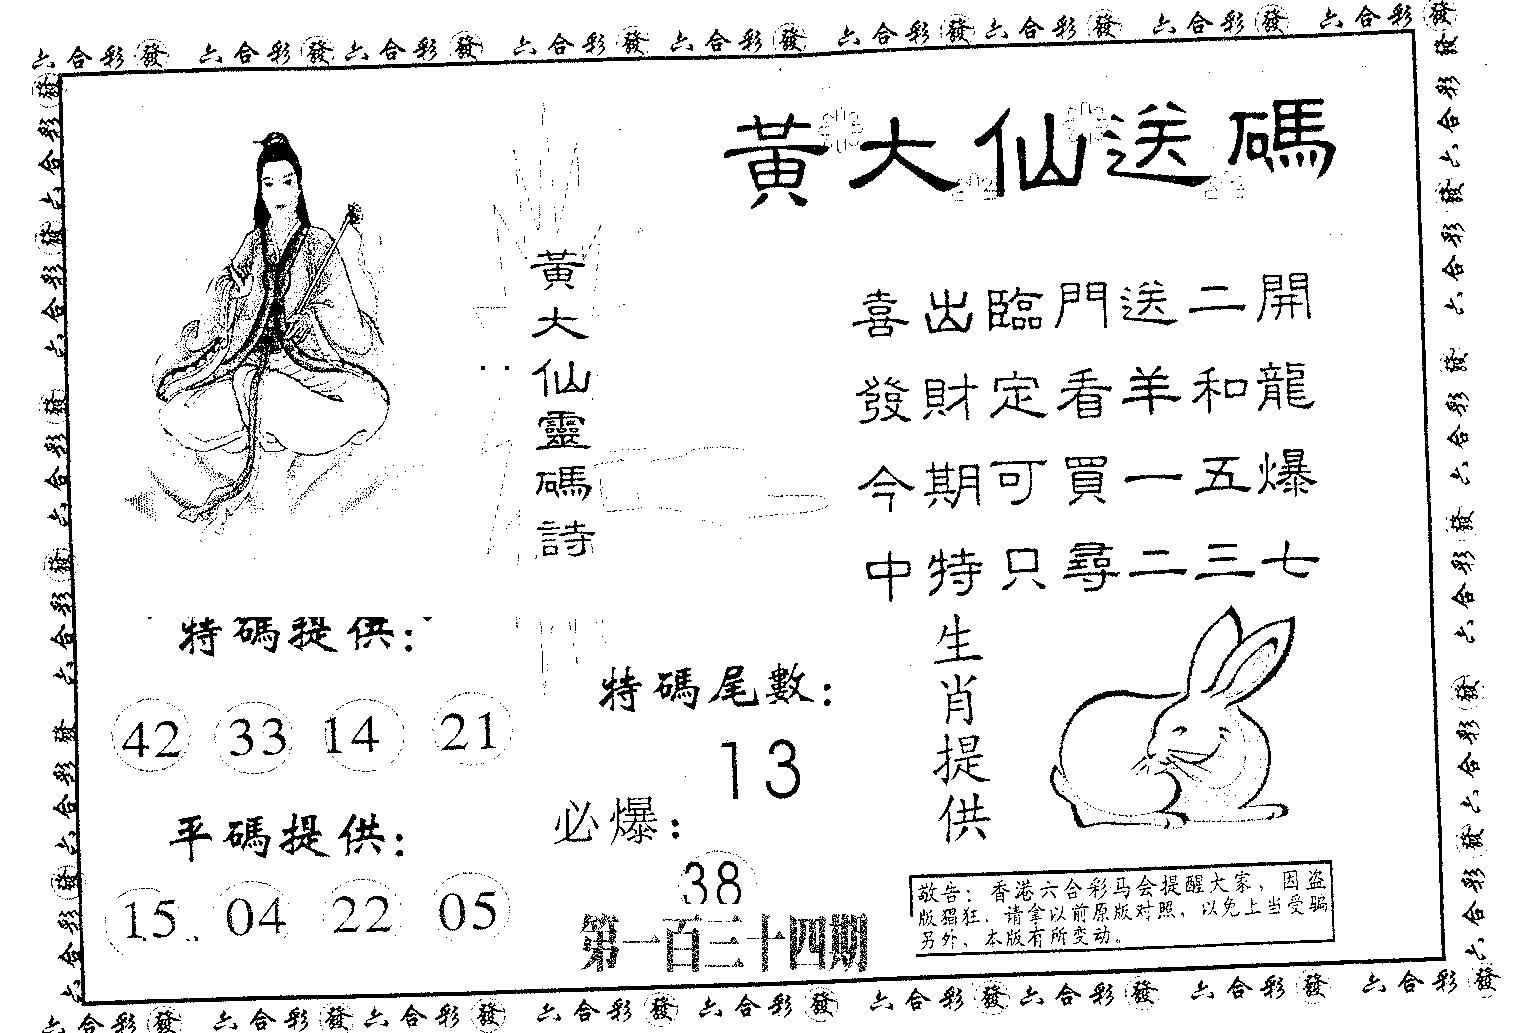 六合彩發 六合彩發 六合彩發 六合彩發 六合彩發 六合彩發 六合彩發 六合彩發 六合彩發
黃大仙送碼
黃大仙靈碼詩
喜出臨門送二開
發財定看羊和龍
今期可買一五爆
中特只尋二三七
特碼提供:
42 33 14 21
平碼提供:
15 04 22 05
特碼尾數:
13
必爆:
38
第一百三十四期
生肖提供
敬告: 香港六合彩马会提醒大家, 因盗
版猖狂, 请拿以前原版对照, 以免上当受骗
另外, 本版有所变动。
六合彩發 六合彩發 六合彩發 六合彩發 六合彩發 六合彩發 六合彩發 六合彩發 六合彩發